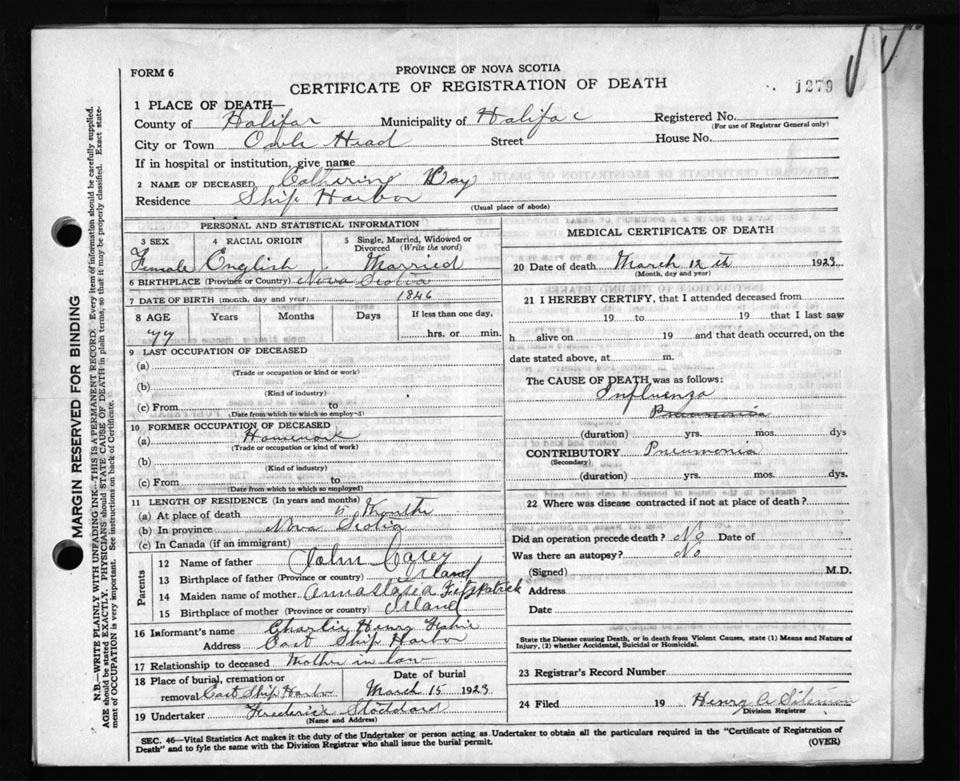 FORM 6
PROVINCE OF NOVA SCOTIA
CERTIFICATE OF REGISTRATION OF DEATH
1279
1 PLACE OF DEATH—
County of Halifax Municipality of Halifac Registered No.
(For use of Registrar General only)
City or Town Owls Head Street House No.
If in hospital or institution, give name
2 NAME OF DECEASED Catherine Day
Residence Ship Harbor
(Usual place of abode)
PERSONAL AND STATISTICAL INFORMATION
3 SEX 4 RACIAL ORIGIN 5 Single, Married, Widowed or Divorced (Write the word)
Female English Married
6 BIRTHPLACE (Province or Country) Nova Scotia
7 DATE OF BIRTH (month, day and year) 1846
8 AGE Years Months Days If less than one day,
77 hrs. or min.
9 LAST OCCUPATION OF DECEASED
(a)
(Trade or occupation or kind or work)
(b)
(Kind of industry)
(c) From to
(Date from which to which so employed)
10 FORMER OCCUPATION OF DECEASED
(a) Homework
(Trade or occupation or kind of work)
(b)
(Kind of industry)
(c) From to
(Date from which to which so employed)
11 LENGTH OF RESIDENCE (In years and months)
(a) At place of death Months
(b) In province Nova Scotia
(c) In Canada (if an immigrant)
Parents
12 Name of father John Carey
13 Birthplace of father (Province or country) Irland
14 Maiden name of mother Annastasia Fitzpatrick
15 Birthplace of mother (Province or country) Irland
16 Informant's name Charlie Henry
Address East Ship Harbor
17 Relationship to deceased Mother in law
18 Place of burial, cremation or removal East Ship Harbor Date of burial March 15 1923
19 Undertaker Frederick Stoddard
(Name and Address)
MEDICAL CERTIFICATE OF DEATH
20 Date of death March 12 th 1923
(Month, day and year)
21 I HEREBY CERTIFY, that I attended deceased from
19 to 19 that I last saw
h alive on 19 and that death occurred, on the
date stated above, at m.
The CAUSE OF DEATH was as follows:
Influenza
Pneumonia
(duration) yrs. mos. dys
CONTRIBUTORY Pneumonia
(Secondary)
(duration) yrs. mos. dys.
22 Where was disease contracted if not at place of death?
Did an operation precede death? No Date of
Was there an autopsy? No
(Signed) M.D.
Address
Date
State the Disease causing Death, or in death from Violent Causes, state (1) Means and Nature of
Injury, (2) whether Accidental, Suicidal or Homicidal.
23 Registrar's Record Number
24 Filed 19 Henry
Division Registrar
SEC. 46—Vital Statistics Act makes it the duty of the Undertaker or person acting as Undertaker to obtain all the particulars required in the "Certificate of Registration of
Death" and to fyle the same with the Division Registrar who shall issue the burial permit. (OVER)
MARGIN RESERVED FOR BINDING
N.B.—WRITE PLAINLY WITH UNFADING INK—THIS IS A PERMANENT RECORD. Every item of information should be carefully supplied.
AGE should be stated EXACTLY. PHYSICIANS should STATE CAUSE OF DEATH in plain terms, so that it may be properly classified. Exact state-
ment of OCCUPATION is very important. See instructions on back of Certificate.